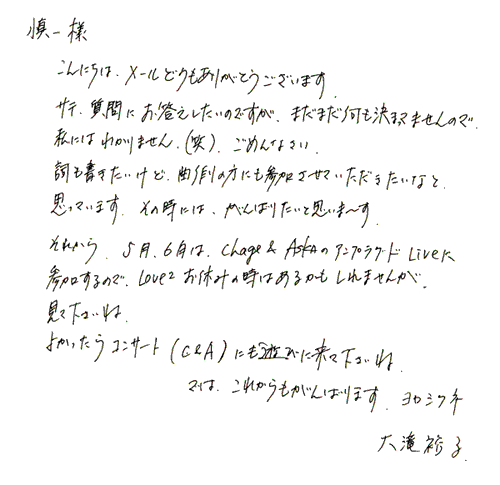 慎一様
こんにちは、メールどうもありがとうございます。
サテ、質問にお答えしたいのですが、まだまだ何も決まってませんので、
私にはわかりません。(笑)。ごめんなさい
詞も書きたいけど、曲作りの方にも参加させていただきたいなと
思っています。その時には、がんばりたいと思いま〜す。
それから、5月、6月は、Chage & ASKAのアンプラグド Liveに
参加するので、Love2 お休みの時はあるかもしれませんが、
見て下さいね。
よかったらコンサート(C&A)にも遊びに来て下さいね。
では、これからもがんばります。ヨロシクネ
大滝裕子